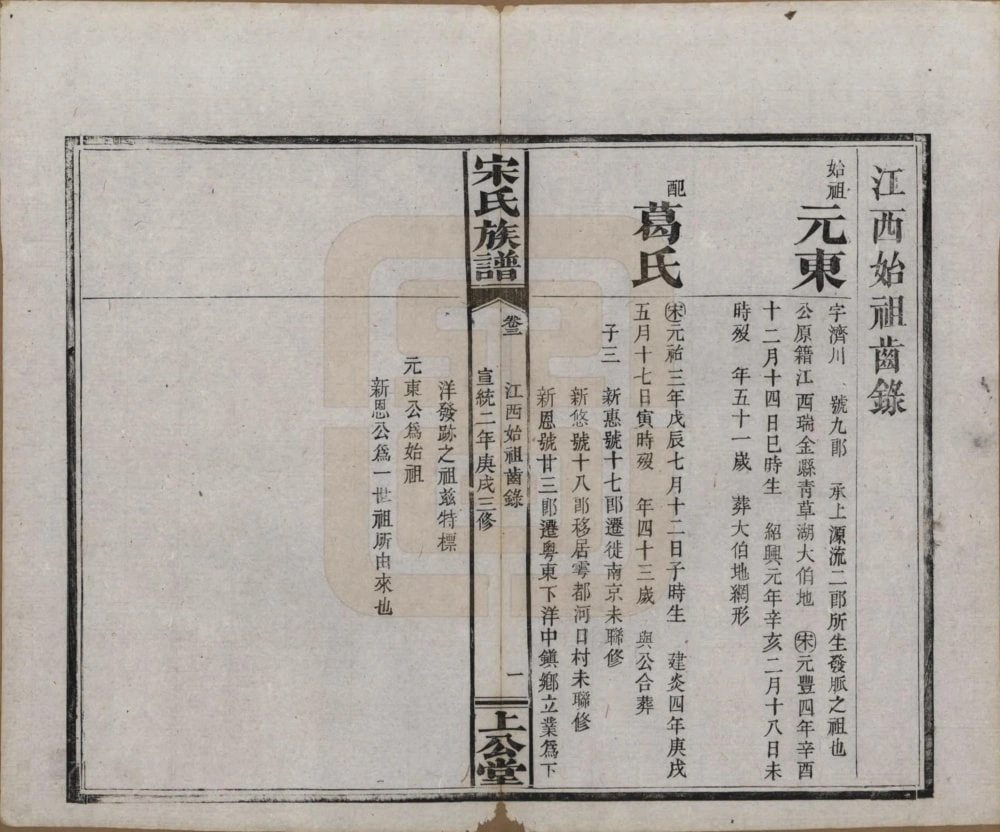 江西始祖齒錄
始祖 元東
字濟川 號九郎 承上源流二郎所生發脈之祖也
公原籍江西瑞金縣青草湖大伯地 宋元豐四年辛酉
十二月十四日巳時生 紹興元年辛亥二月十八日未
時歿 年五十一歲 葬大伯地網形
配 葛氏
宋元祐三年戊辰七月十二日子時生 建炎四年庚戌
五月十七日寅時歿 年四十三歲 與公合葬
子三 新惠號十七郎遷徙南京未聯修
新悠號十八郎移居雩都河日村未聯修
新恩號廿三郎遷粵東下洋中鎮鄉立業爲下
宋氏族譜
卷三
江西始祖齒錄
宣統二年庚戌三修
一
上公堂
洋發跡之祖茲特標
元東公爲始祖
新恩公爲一世祖所由來也